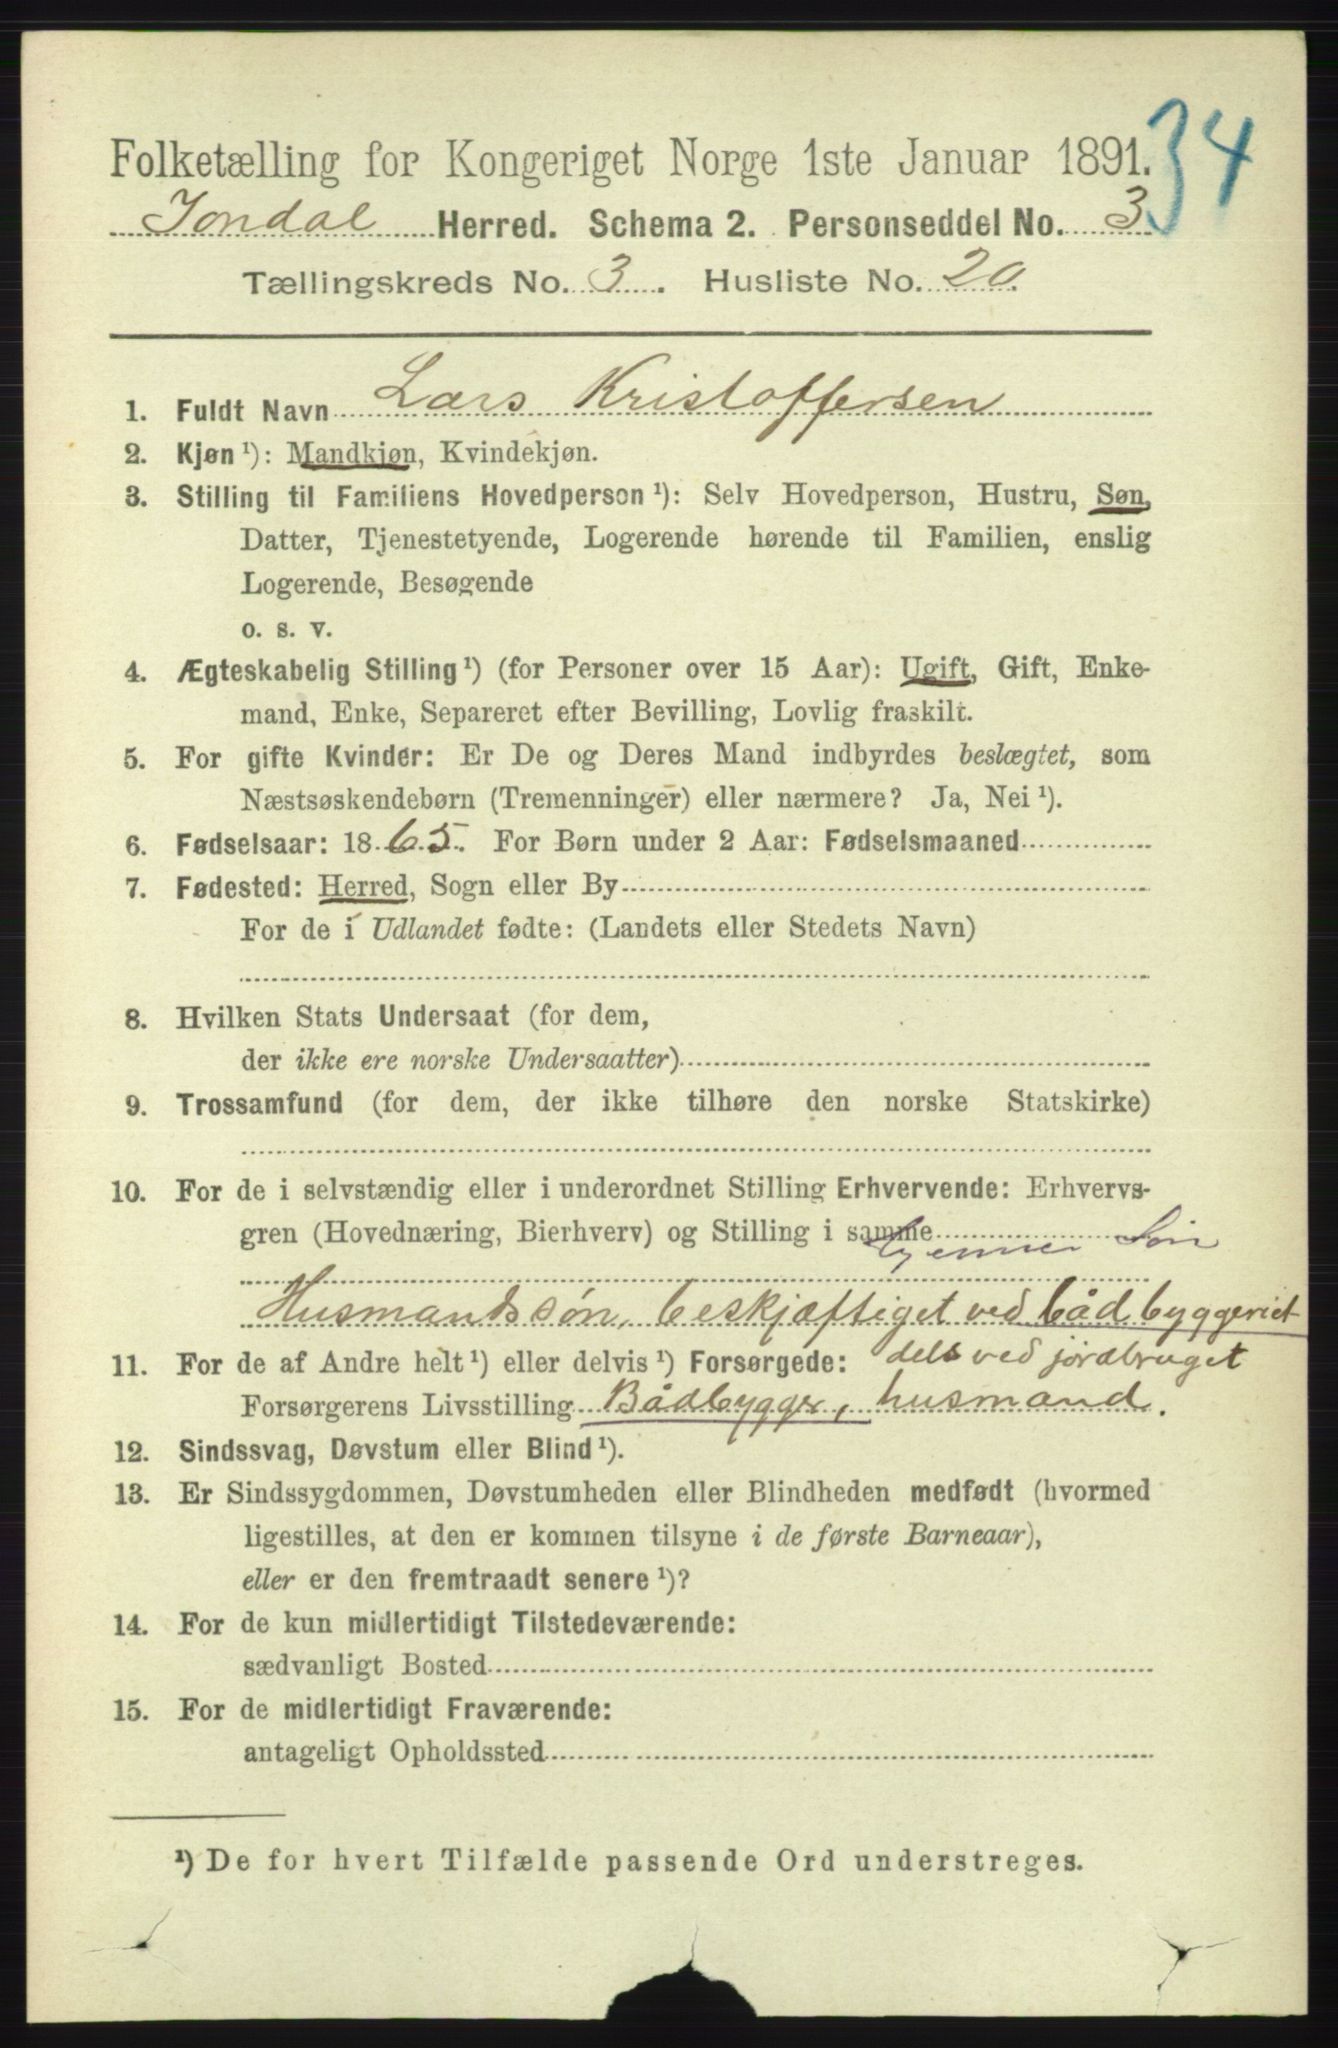 34
Folketælling for Kongeriget Norge 1ste Januar 1891.
Jondal Herred. Schema 2. Personseddel No. 3
Tællingskreds No. 3. Husliste No. 20.
1. Fuldt Navn Lars Kristoffersen
2. Kjøn¹): Mandkjøn, Kvindekjøn.
3. Stilling til Familiens Hovedperson¹): Selv Hovedperson, Hustru, Søn,
Datter, Tjenestetyende, Logerende hørende til Familien, enslig
Logerende, Besøgende
o. s. v.
4. Ægteskabelig Stilling¹) (for Personer over 15 Aar): Ugift, Gift, Enke-
mand, Enke, Separeret efter Bevilling, Lovlig fraskilt.
5. For gifte Kvinder: Er De og Deres Mand indbyrdes beslægtet, som
Næstsøskendebørn (Tremenninger) eller nærmere? Ja, Nei¹).
6. Fødselsaar: 1865. For Børn under 2 Aar: Fødselsmaaned
7. Fødested: Herred, Sogn eller By
For de i Udlandet fødte: (Landets eller Stedets Navn)
8. Hvilken Stats Undersaat (for dem,
der ikke ere norske Undersaatter)
9. Trossamfund (for dem, der ikke tilhøre den norske Statskirke)
10. For de i selvstændig eller i underordnet Stilling Erhvervende: Erhvervs-
gren (Hovednæring, Bierhverv) og Stilling i samme
Søn
Husmandssøn, beskjæftiget ved bådbyggeriet
11. For de af Andre helt¹) eller delvis¹) Forsørgede: dels ved jordbruget
Forsørgerens Livsstilling Bådbygger, husmand.
12. Sindssvag, Døvstum eller Blind¹).
13. Er Sindssygdommen, Døvstumheden eller Blindheden medfødt (hvormed
ligestilles, at den er kommen tilsyne i de første Barneaar),
eller er den fremtraadt senere¹)?
14. For de kun midlertidigt Tilstedeværende:
sædvanligt Bosted
15. For de midlertidigt Fraværende:
antageligt Opholdssted
¹) De for hvert Tilfælde passende Ord understreges.